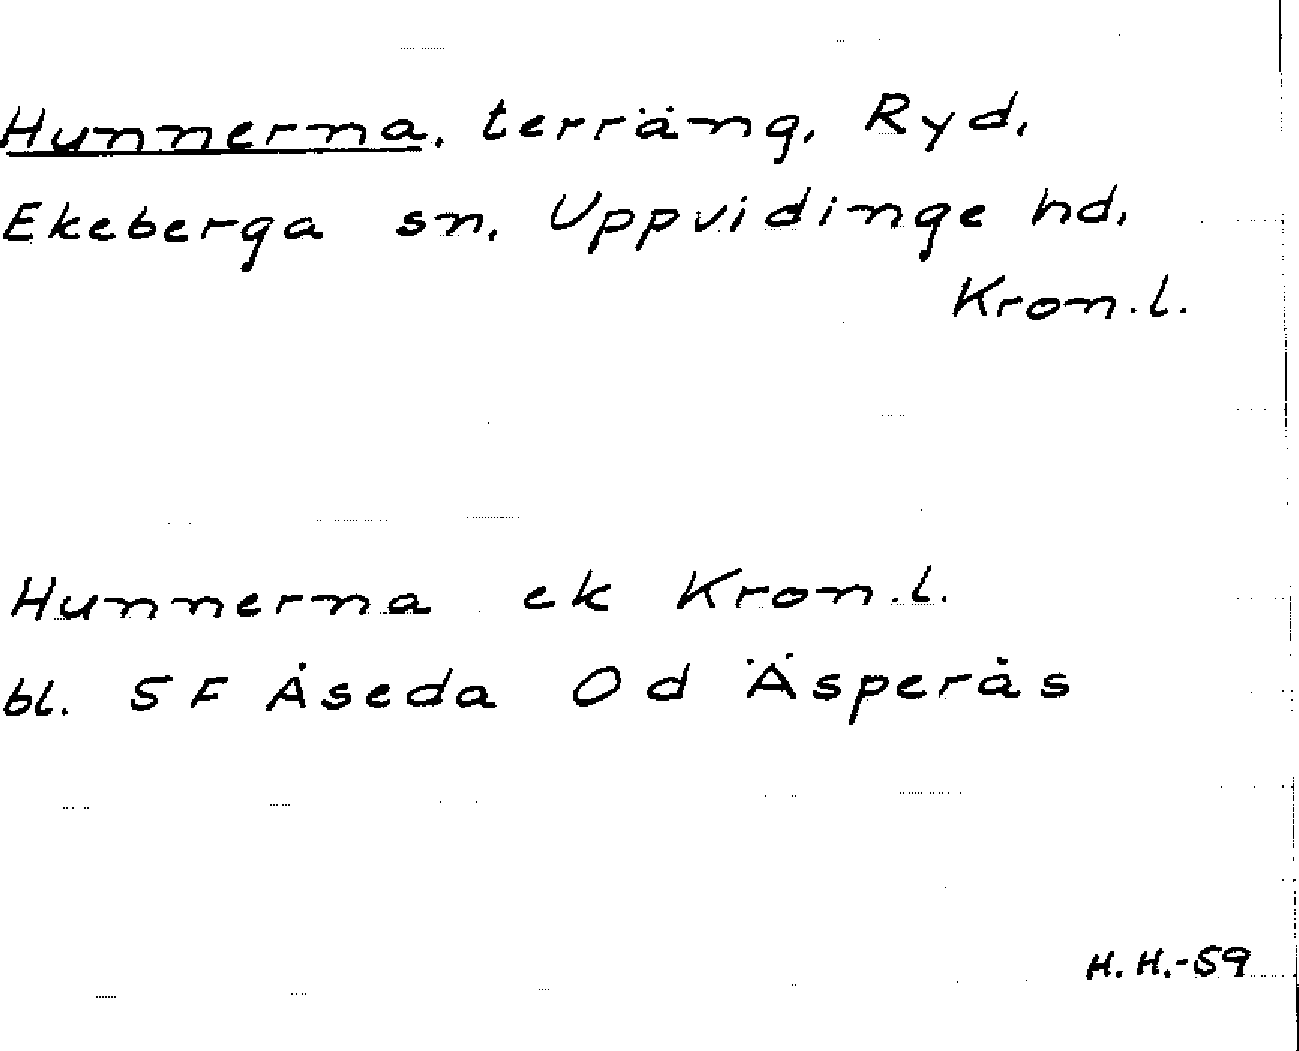 Hunnerna, terräng, Ryd,
Ekeberga sn, Uppvidinge hd,
Kron.l.
Hunnerna ek Kron.l.
bl. 5F Åseda Od Äsperås
H.H.-59